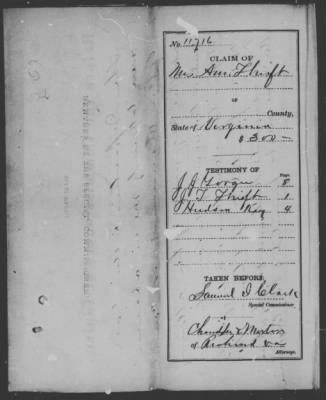 No. 11716
CLAIM OF
Mrs Ann Thrift
OF
County,
State of Virginia
$ 300 —
TESTIMONY OF
Page.
J. J. Gorgu 8
T Thrift 1
Hudson Kay 4
TAKEN BEFORE
Samuel I Clark
Special Commissioner.
Chandler & Morton
of Richmond Va
Attorney.